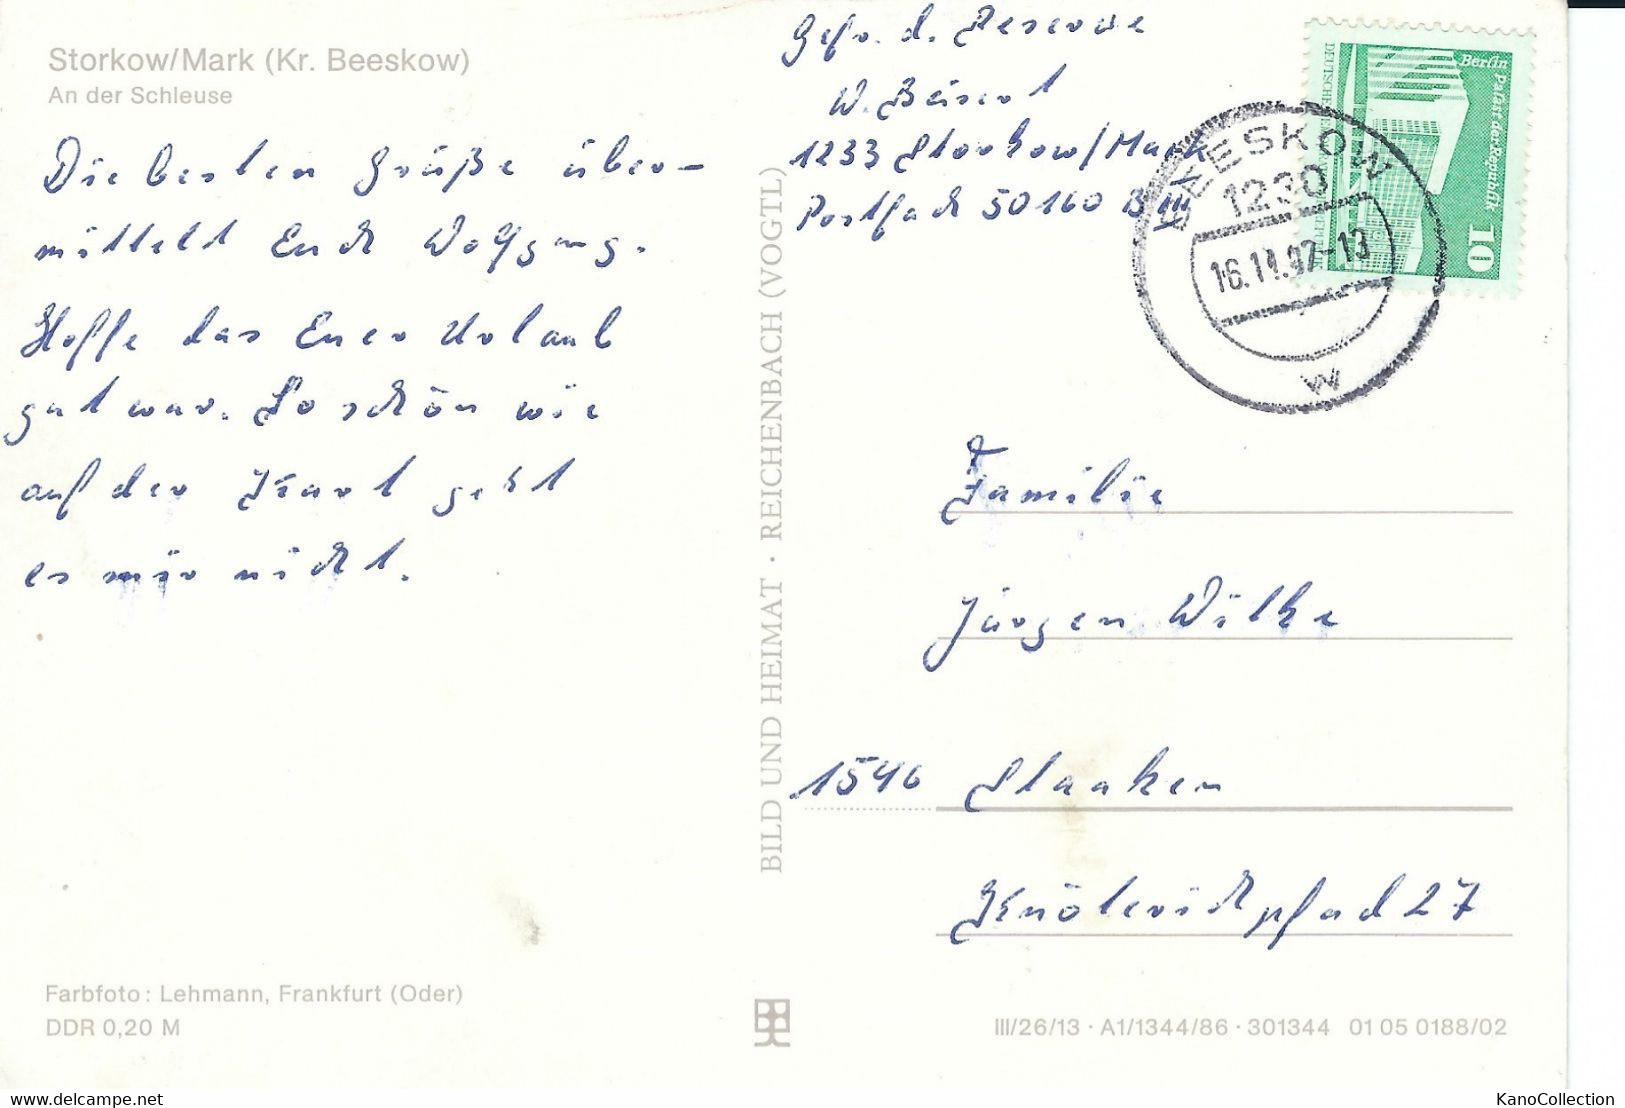 Storkow/Mark (Kr. Beeskow)
An der Schleuse
Die besten Grüße über-
mittelt Euch Wolfgang.
Hoffe das Euer Urlaub
gut war. So schön wie
auf der Karte geht
es mir nicht.
Farbfoto: Lehmann, Frankfurt (Oder)
DDR 0,20 M
BILD UND HEIMAT · REICHENBACH (VOGTL)
Gefr. d. Reserve
W.
1233 Storkow/Mark
Postfach 50160 B III
Berlin Palast der Republik
10
BEESKOW
1230
16.11.87-13
w
Familie
Jürgen Wilke
1546 Staaken
Knöterichpfad 27
III/26/13 · A1/1344/86 · 301344 01 05 0188/02
www.delcampe.net
KanoCollection